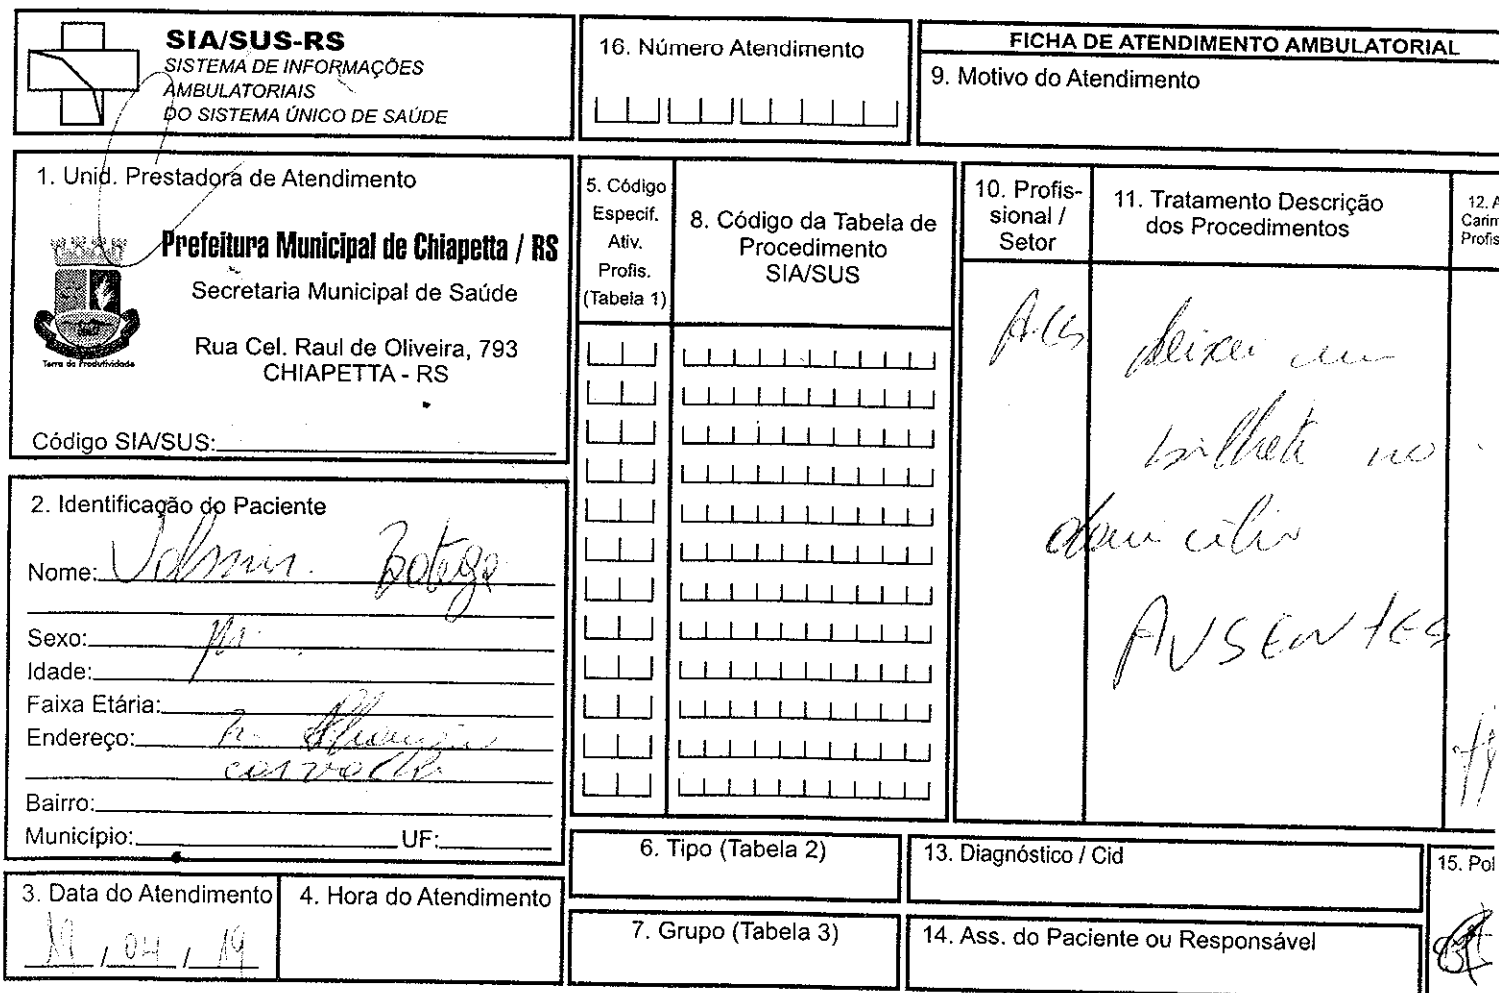 SIA/SUS-RS
SISTEMA DE INFORMAÇÕES
AMBULATORIAIS
DO SISTEMA ÚNICO DE SAÚDE
16. Número Atendimento
FICHA DE ATENDIMENTO AMBULATORIAL
9. Motivo do Atendimento
1. Unid. Prestadora de Atendimento
Prefeitura Municipal de Chiapetta / RS
Secretaria Municipal de Saúde
Rua Cel. Raul de Oliveira, 793
CHIAPETTA - RS
Terra da Produtividade
Código SIA/SUS:
2. Identificação do Paciente
Nome:
Sexo: M.
Idade:
Faixa Etária:
Endereço:
Bairro:
Município: UF:
3. Data do Atendimento
/ 04 / 19
4. Hora do Atendimento
5. Código
Especif.
Ativ.
Profis.
(Tabela 1)
8. Código da Tabela de
Procedimento
SIA/SUS
6. Tipo (Tabela 2)
7. Grupo (Tabela 3)
10. Profis-
sional /
Setor
ACS
11. Tratamento Descrição
dos Procedimentos
deixei um
bilhete no
domicílio
AUSENTES
12. A
Carim
Profis
13. Diagnóstico / Cid
14. Ass. do Paciente ou Responsável
15. Pol